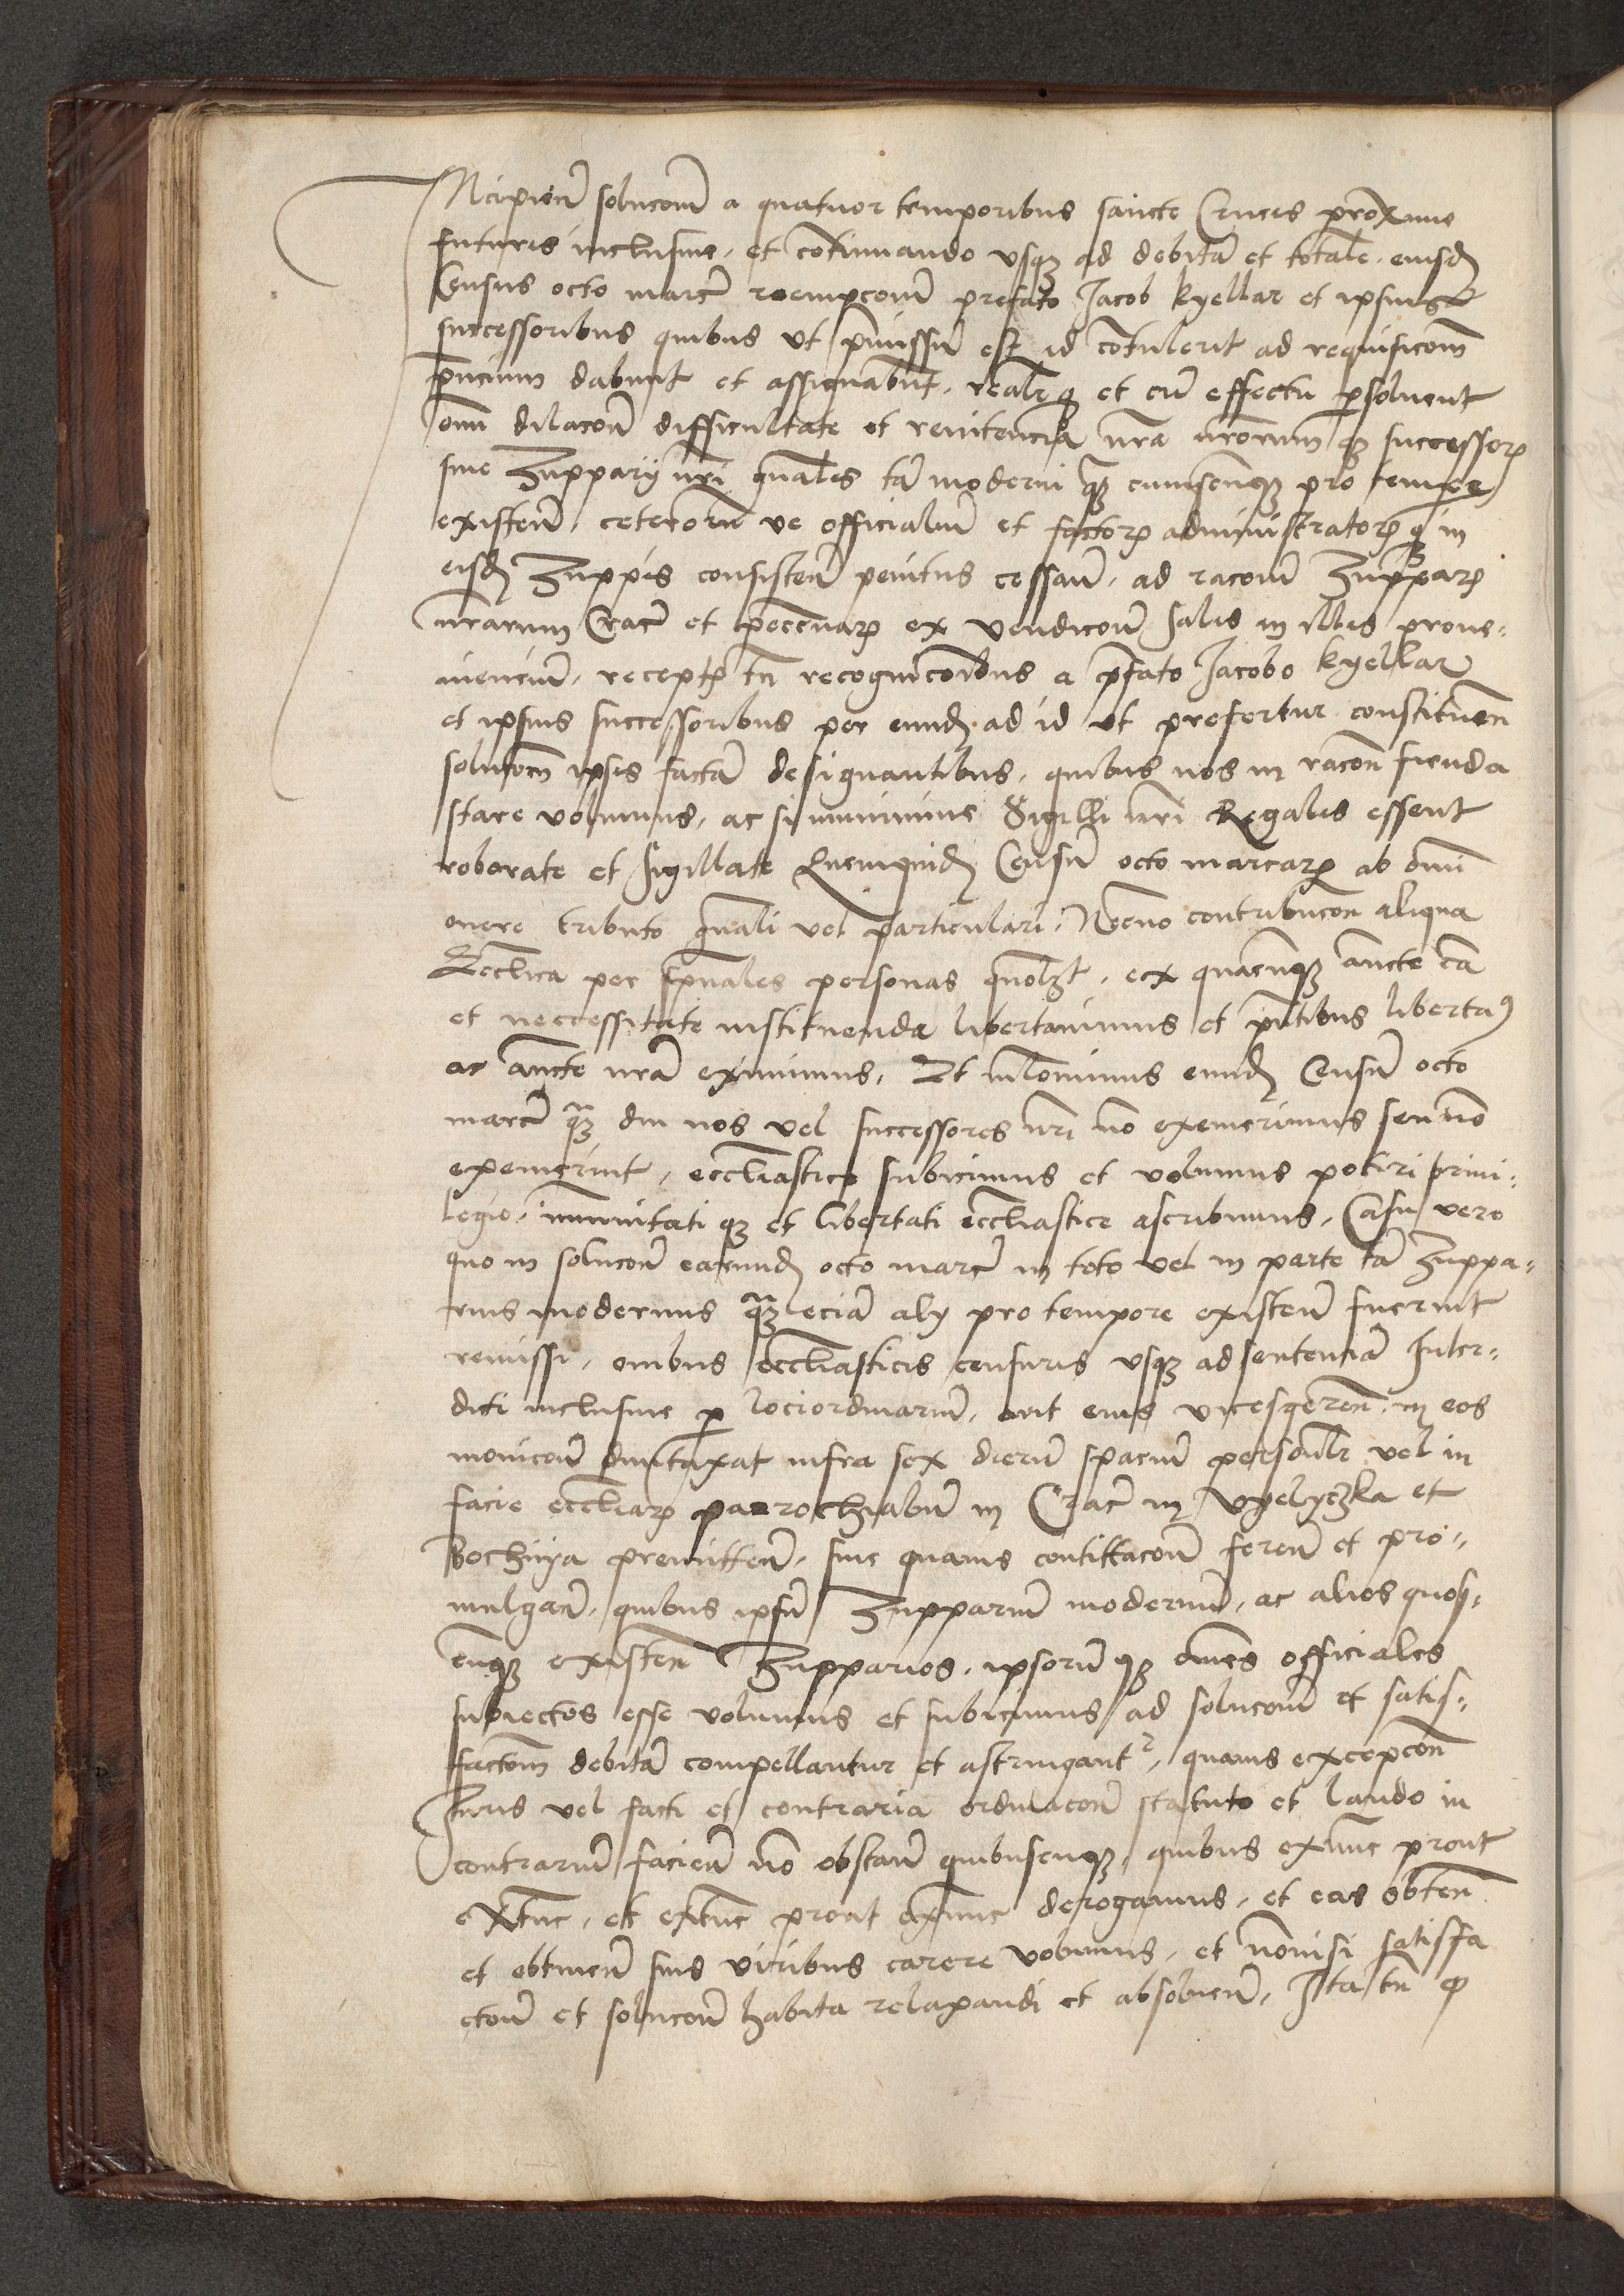 Incipien̄ soluc̄on̄ a quatuor temporibus sancte Crucis proxime
futuris inclusiue, et c̄otinuando vsqz ad debitā et totalē eiusd̄
Census octo marc̄ reempcōn̄ prefato Jacob kyellar et ipsius
successoribus quibus vt p̄missū est id cōtulerit ad requisicōm̄
p̄ncium dabunt et assignabūt, realr̄ qz et cū effectu p̄soluent
om̄i dilacōn̄ difficultate et renitencia nr̄a nr̄orum qz successorꝝ
siue Zupparij nr̄i gnāles tā moderni qz̄ cuiuscunqz pro tempore
existen̄, ceterorū ve officialiū et factorꝝ administratorꝝ qz in
eisd̄ Zuppis consisten̄ penitus cessan̄, ad racōn̄ Zupparꝝ
nr̄arum Crac̄ et pecc̄niarꝝ ex vendicōn̄ salis in illis proue-
niencium̄, receptꝭ tn̄ recognicōibus a p̄fato Jacobo kyellar
et ipsius successoribus per eund̄ ad id vt prefertur constituen̄
solucōn̄ ipsis factā designantibus, quibus nos in racōn̄ fienda
stare volumus, ac si munimine Sigilli nr̄i Regalis essent
roborate et sigillate Quemquid̄ Censū octo marcarꝝ ab om̄i
onere tributo gn̄ali vel particulari, Necno contribucōn̄ aliqua
Eccl̄ica per spūales personas quolzt, ex quacunqz aūcte cā
et neccessitate instituenda libertauimus et p̄ntibus libertaꝰ
ac aūcte nr̄ā eximimus, Et nilominus eund̄ Censū octo
marc̄ qz̄ diu nos vel successores nr̄i nō exemerimus seu nō
exemerint, eccl̄iastico subicimus et volumus potiri priui-
legio, īmunitati qz et libertati eccl̄iastice ascribimus, Casu vero
quo in solucōn̄ earund̄ octo marc̄ in toto vel in parte tā Zuppa-
rius modernus qz̄ eciā alij pro tempore existen̄ fuerint
remissi, om̄ibus eccl̄iasticis censuris vsqz ad sentenciā Inter-
dicti inclusiue ꝑ lociordinariū, aut eius vicesgeren̄, in eos
monicōn̄ dumtaxat infra sex dierū spaciū personal̄r vel in
facie eccl̄iarꝝ parrochialiū in Crac̄ in Vyelyczka et
Bochnya premitten̄, siue quauis contittacōn̄ feren̄ et pro-
mulgan̄, quibus ipsū Zuppariū modernū, ac alios quos-
cūqz existen̄ Zupparios, ipsorū qz om̄es officiales
subiectos esse volumus et subicimus ad solucōn̄ et satis-
factōm̄ debitā compellantur et astringantꝛ, quauis excepcōn̄
Juris vel facti et contraria ordinacōn̄ statuto et laudo in
contrariū facien̄ nō obstan̄ quibuscunqz, quibus exnunc prout
extunc, et extunc prout exnunc derogamus, et eas obten̄
et obtinen̄ suis viribus carere volumus, et nōnisi satisfa
ctōn̄ et solucōn̄ habita relaxandi et absoluen̄, Ita tn̄ ꝙ